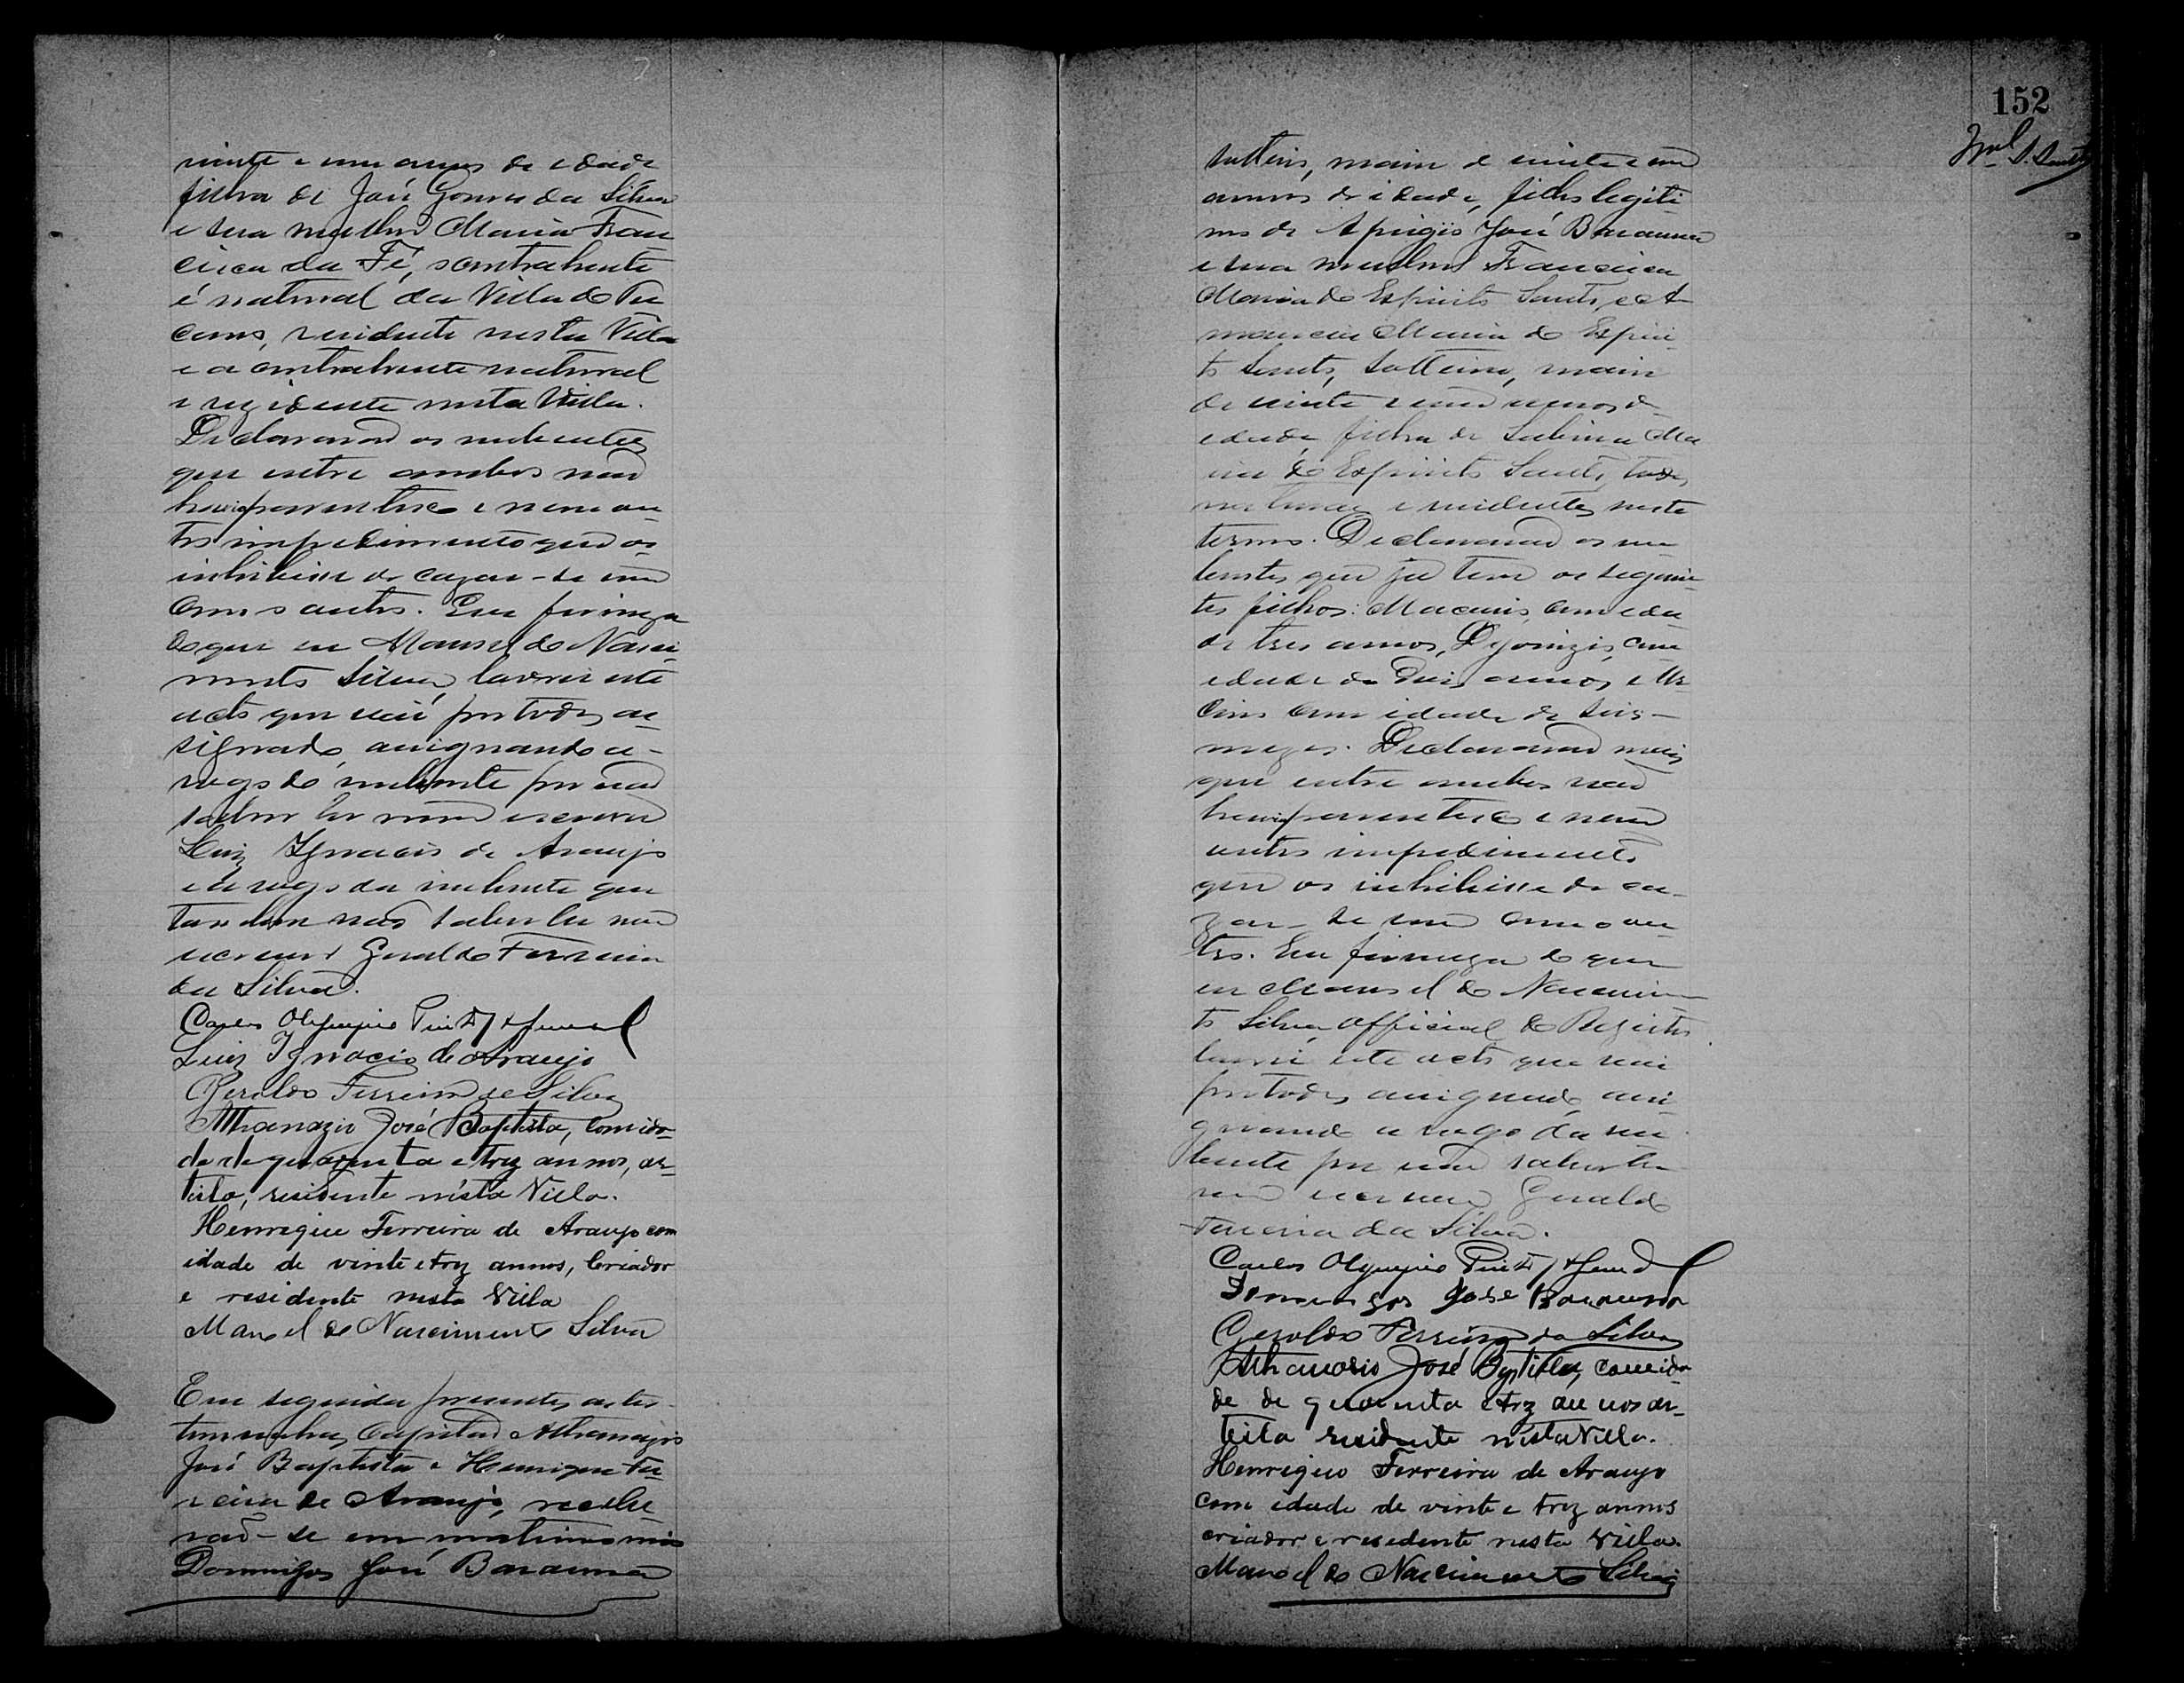 vinte e um annos de edade
filha de José Gomes da Silva
e sua mulher Maria Fran
cisca da Fé, o contrahente
é natural da Villa do Tu
cano, residente nesta Villa
e a contrahente natural
e rezidente nesta Villa.
Declararaõ os nubentes
que entre ambos naõ
havia parentesco e nem ou
tro impedimento que os
inhibisse de cazar-se um
com o outro. Em firmeza
do que eu Manoel do Nasci
mento Silva, lavrei este
acto que vai por todos as
signado, assignando a
rogo do nubente por naõ
saber ler nem escrever
Luiz Ignacio de Araujo
e a rogo da nubente que
tambem naõ saber ler nem
escrever Geraldo Ferreira
da Silva.
Carlos Olympio Pinto
Luiz Ignacio de Araujo
Geraldo Ferreira da Silva
Athanazio José Baptista, com ida-
de de quarenta e trez annos, ar-
tista, residente nésta Villa.
Henrique Ferreira de Araujo com
idade de vinte e trez annos, Criador
e residente nesta Villa
Manoel do Nascimento Silva
Em seguida presentes as tes-
temunhas, Capitaõ Athanazio
José Baptista e Henrique Fer
reira de Araujo, recebe
raõ-se em matrimonio
Domingos José Barauna
152
solteiro, maior de vinte e um
annos de idade, filho legiti
mo de Aprigio José Barauna
e sua mulher Francisca
Maria do Espirito Santo, e A
mancia Maria do Espiri
to Santo, solteira, maior
de vinte e um annos de
edade, filha de Sabina Ma
ria do Espirito Santo, todos
naturaes e residentes neste
termo. Declararaõ os nu
bentes que já tem os seguin
tes filhos: Macario, com eda
de tres annos, Dyonizio, com
edade de dois annos, e
com idade de seis
mezes. Declararaõ mais
que entre ambos naõ
havia parentesco e nem
outro impedimento
que os inhibisse de ca-
zar-se um com o ou
tro. Em firmeza do que
eu Manoel do Nascimen
to Silva, official do Registro
lavrei este acto que vai
por todos assignado, assi
gnando a rogo da nu
bente por naõ saber ler
nem escrever Geraldo
Ferreira da Silva.
Carlos Olympio Pinto
Domingos José Barauna
Geraldo Ferreira da Silva
Athanasio José Baptista, com ida
de de quarenta e trez annos ar-
tista residente nésta Villa.
Henrique Ferreira de Araujo
com idade de vinte e trez annos
criador e residente nesta Villa.
Manoel do Nascimento Silva